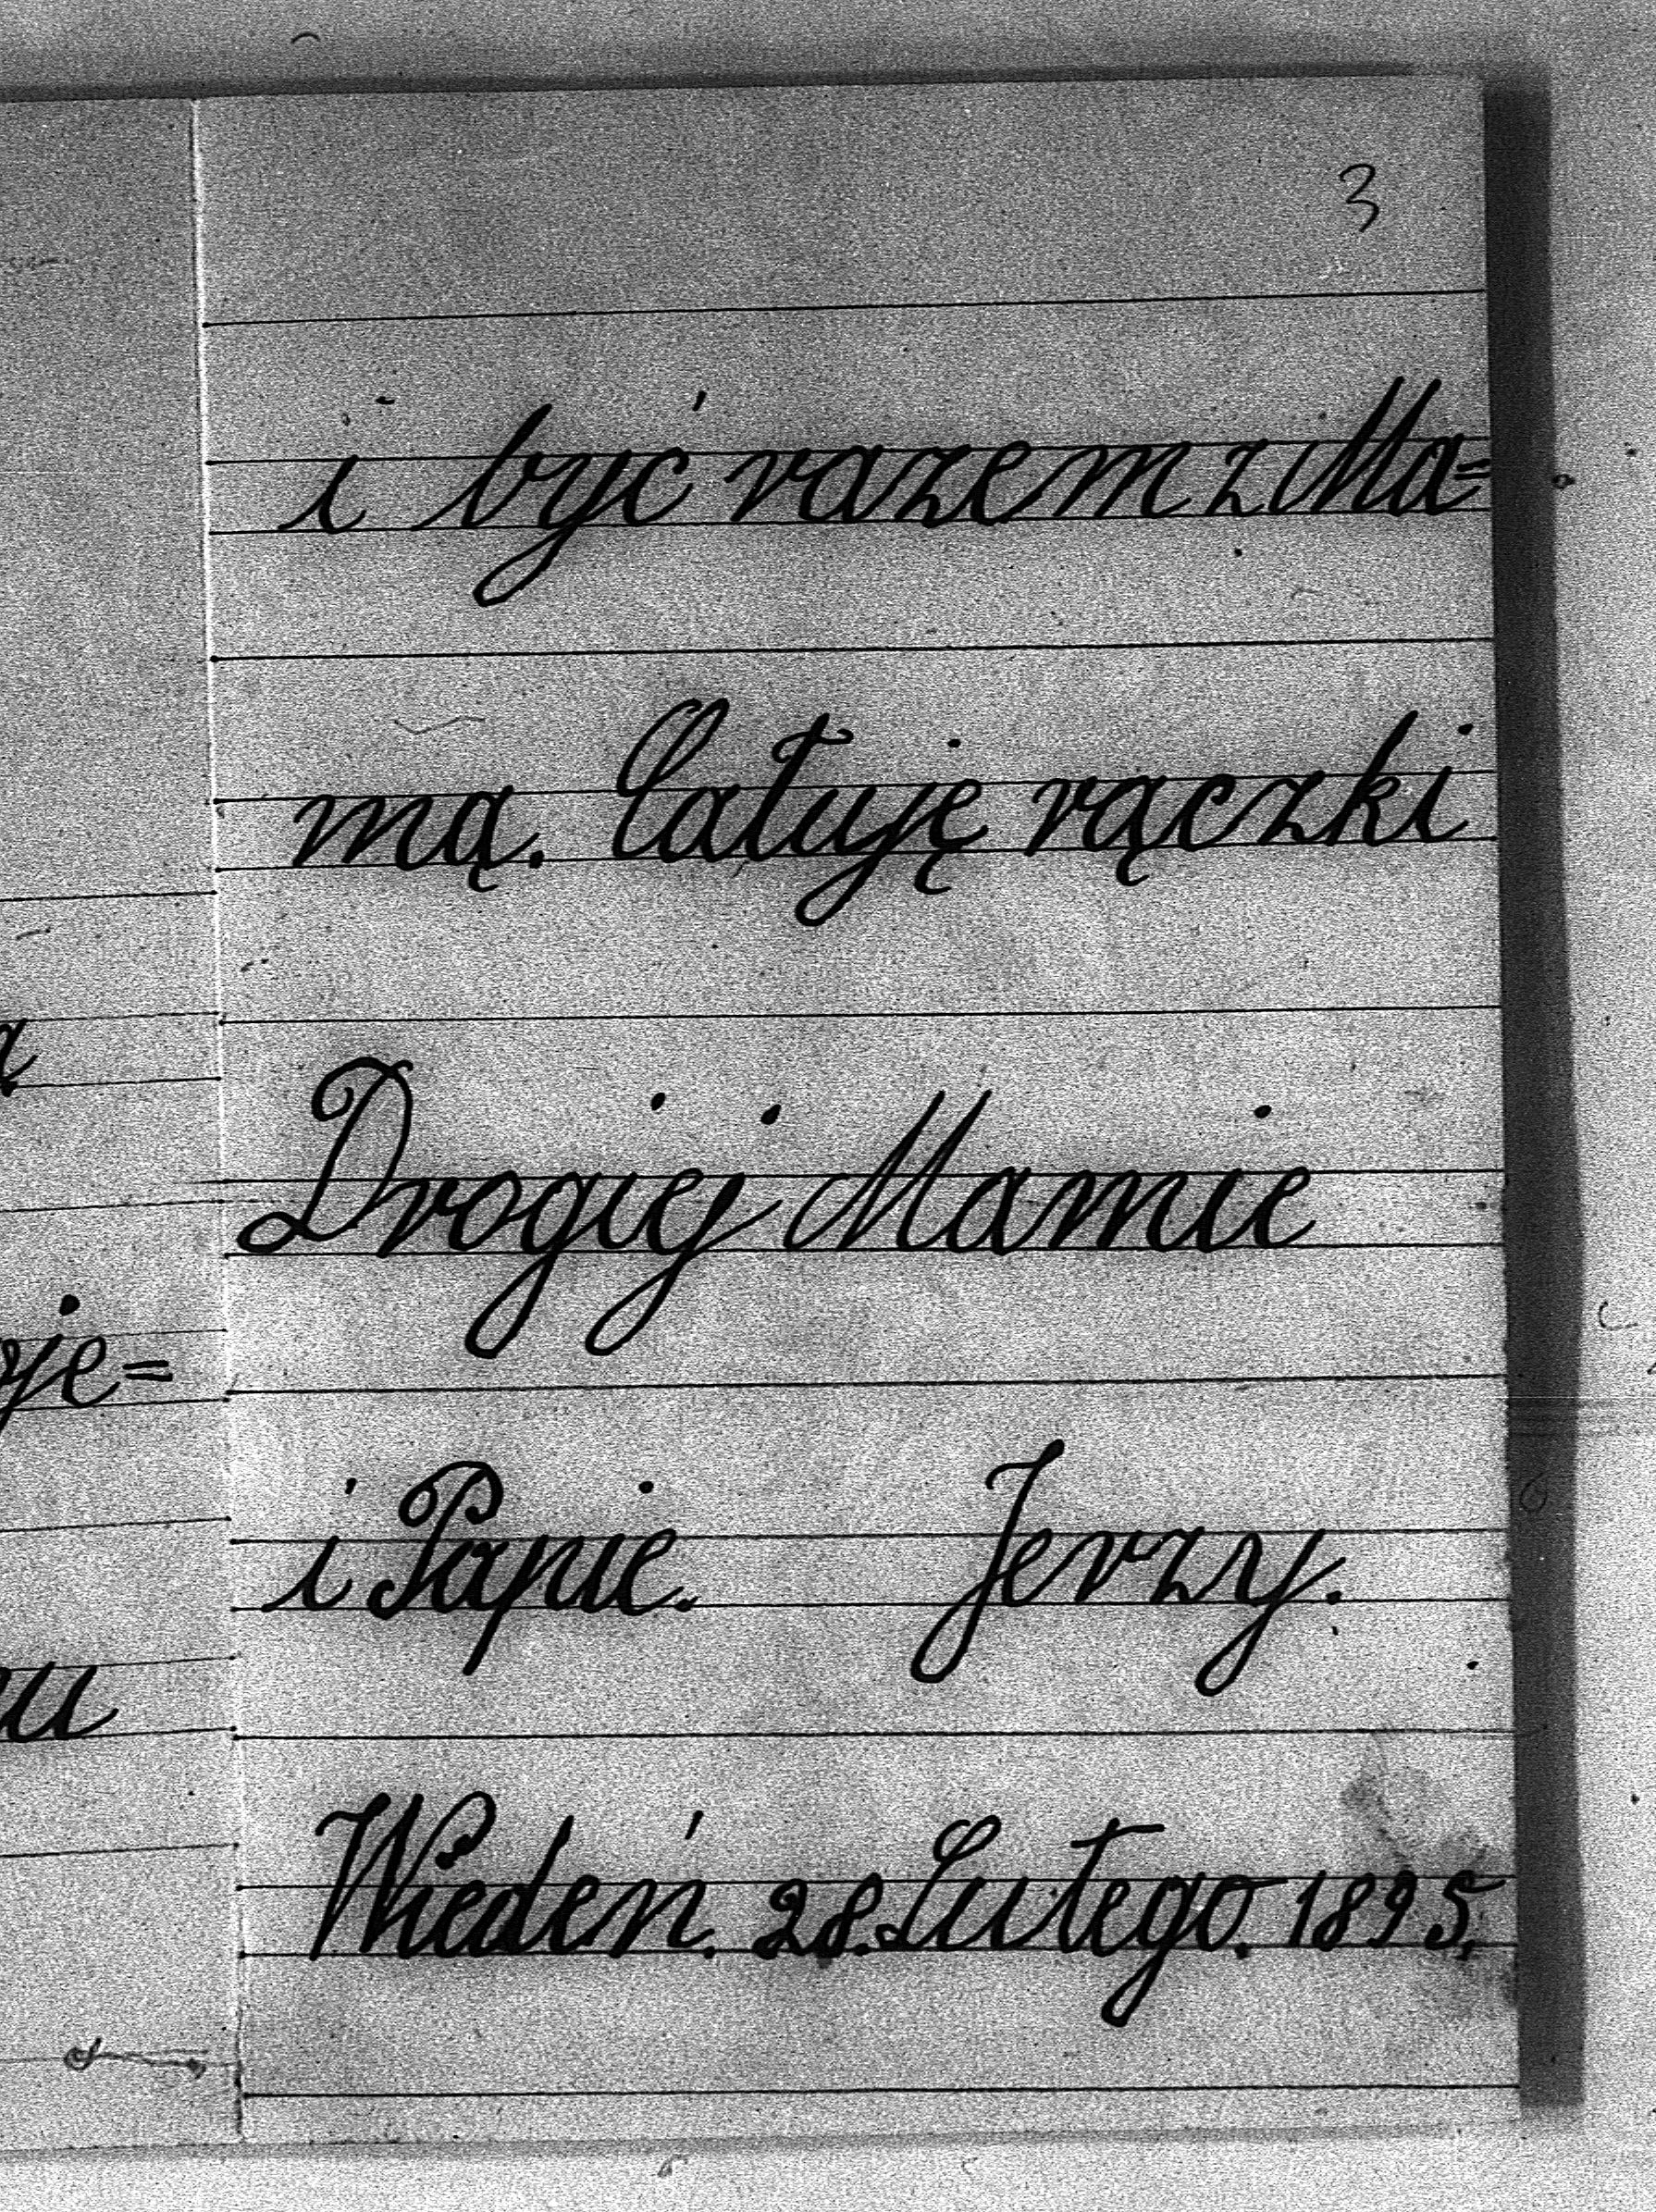 3
i być razem z Ma=
mą. Całuję rączki
Drogiej Mamie
i Papie. Jerzy.
Wiedeń. 28. Lutego. 1895.